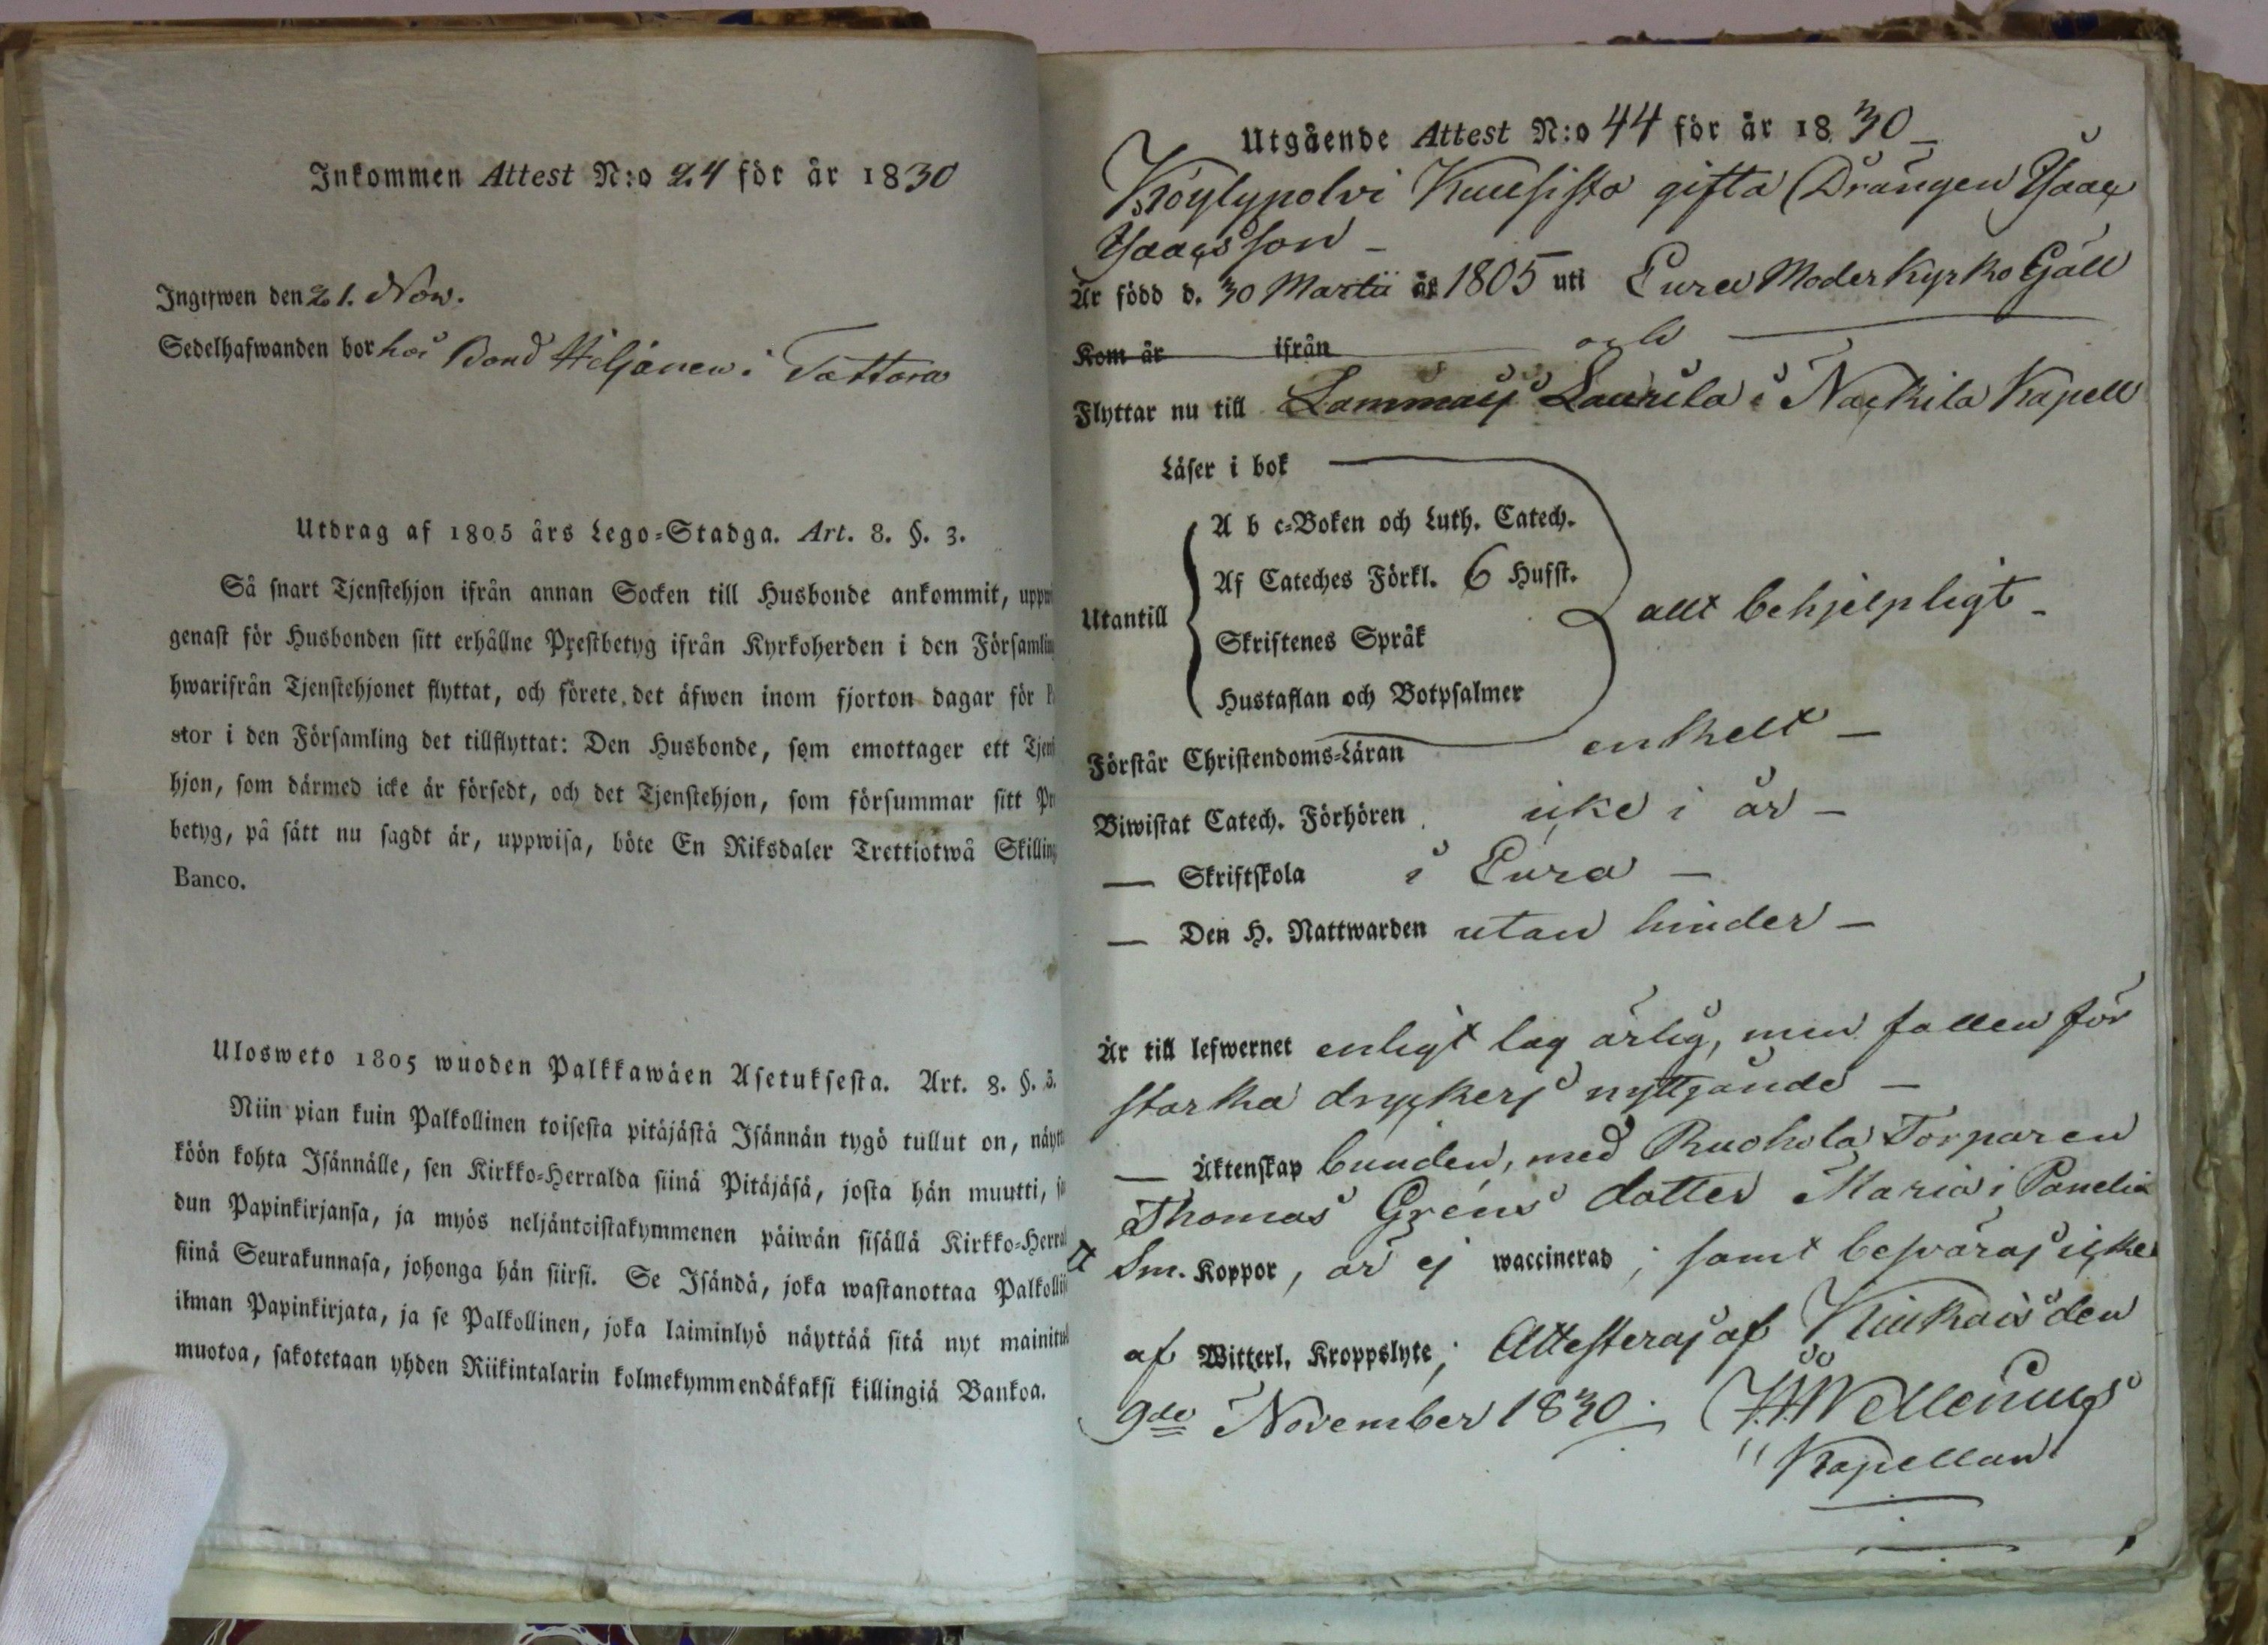 Inkommen Attest N:o 24 för år 1830
Ingifwen den 21. Nov.
Sedelhafwanden bor hos Bond Hiljanen i Tattara
Utdrag af 1805 års Lego-Stadga. Art. 8. §. 3.
Så snart Tjenstehjon ifrån annan Socken till Husbonde ankommit, uppwi
genast för Husbonden sitt erhållne Prestbetyg ifrån Kyrkoherden i den Församlin
hwarifrån Tjenstehjonet flyttat, och förete det äfwen inom fjorton dagar för P
stor i den Församling det tillflyttat: Den Husbonde, som emottager ett Tjen
hjon, som därmed icke är försedt, och det Tjenstehjon, som försummar sitt Pr
betyg, på sätt nu sagdt är, uppwisa, böte En Riksdaler Trettiotwå Skilling
Banco.
Ulosweto 1805 wuoden Palkkawäen Asetuksesta. Art. 8. §. 3.
Niin pian kuin Palkollinen toisesta pitäjästä Isännän tygö tullut on, näytt
köön kohta Isännälle, sen Kirkko-Herralda siinä Pitäjäsä, josta hän muutti, s
dun Papinkirjansa, ja myös neljäntoistakymmenen päiwän sisällä Kirkko-Herral
siinä Seurakunnasa, johonga hän siirsi. Se Isändä, joka wastanottaa Palkolli
ilman Papinkirjata, ja se Palkollinen, joka laiminlyö näyttää sitä nyt mainitu
muotoa, sakotetaan yhden Riikintalarin kolmekymmendäkaksi killingiä Bankoa.
Utgående Attest N:o 44 för år 1830
Köylypolvi Kuusisto gifta Drängen Isaac
Isaacsson
Är född d. 30 Martii år 1805 uti Eura Moderkyrko Gäll
Kom år ifrån och
Flyttar nu till Lammais Laurila i Nackila Kapell
Läser i bok
A b c-Boken och Luth. Catech.
Af Cateches Förkl. 6 Hufst.
Utantill
allt behjelpligt
Skriftenes Språk
Hustaflan och Botpsalmer
Förstår Christendoms-Läran enkelt
Biwistat Catech. Förhören icke i år
— Skriftskola i Eura
— Den H. Nattwarden utan hinder
Är till lefwernet enligt lag ärlig, men fallen för
starka dryckers nyttjande
— Äktenskap bunden, med Ruohola Torparen
Thomas Gréns dotter Maria i Panelia
Sm. Koppor, är ej waccinerad; samt besväras icke
af Witterl. Kroppslyte; Attesteras af Kiukais den
9de November 1830. Wellenius
Kapellan